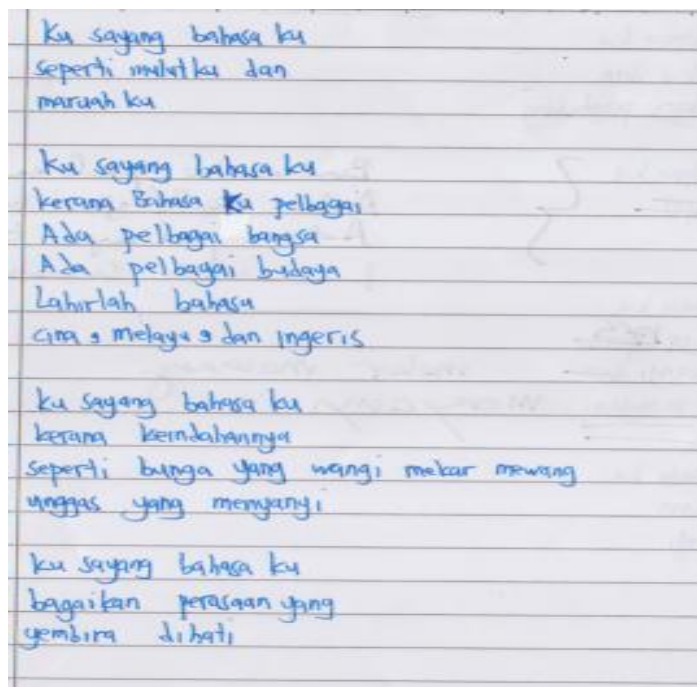 Ku sayang bahasa ku
seperti mulutku dan
maruah ku
Ku sayang bahasa ku
kerana Bahasa Ku pelbagai
Ada pelbagai bangsa
Ada pelbagai budaya
Lahirlah bahasa
cina, melayu, dan ingeris
ku sayang bahasa ku
kerana keindahannya
seperti bunga yang wangi mekar mewang
unggas yang menyanyi
ku sayang bahasa ku
bagaikan perasaan yang
gembira dihati